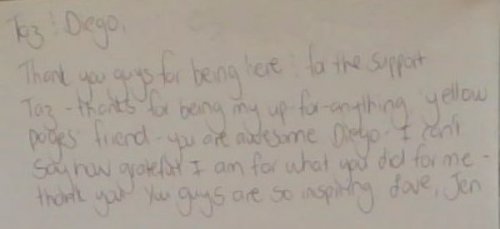 Taz & Diego,
Thank you guys for being here & for the support
Taz - thanks for being my up-for-anything yellow
pages friend - you are awesome Diego - I can't
say how grateful I am for what you did for me -
thank you! You guys are so inspiring Love, Jen